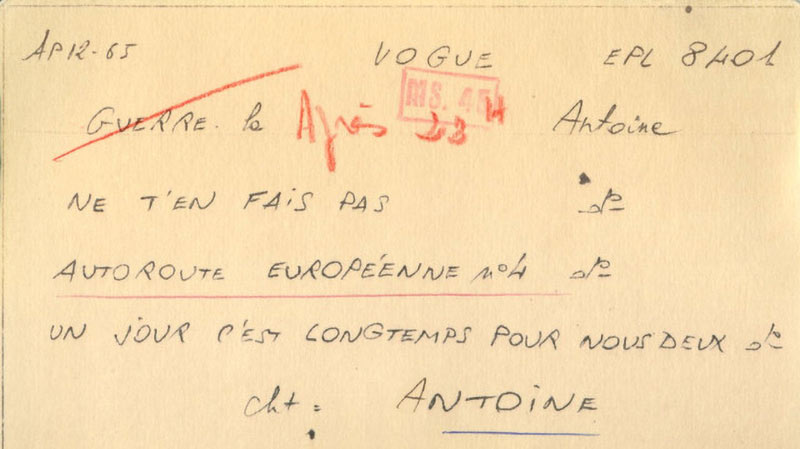 AP12-65 VOGUE EPL 8401
MS. 45
GUERRE. la Après 23H Antoine
NE T'EN FAIS PAS d°
AUTOROUTE EUROPÉENNE n°4 d°
UN JOUR C'EST LONGTEMPS POUR NOUS DEUX d°
cht : ANTOINE